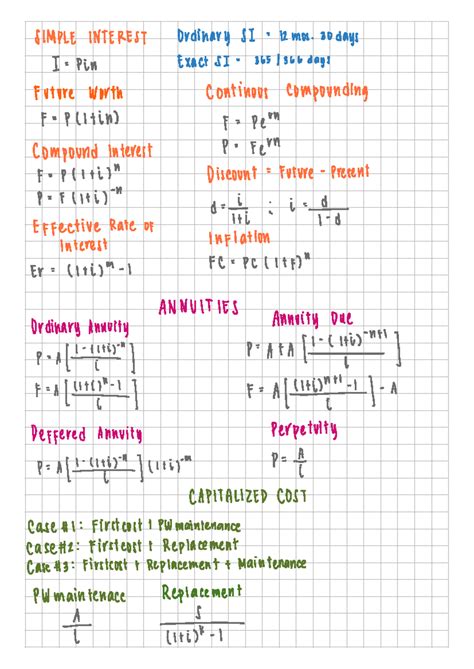 SIMPLE INTEREST
I = Pin
Ordinary SI = 12 mos. 30 days
Exact SI = 365 / 366 days
Future Worth
F = P(1+in)
Continous Compounding
F = Pe^rn
P = Fe^rn
Compound Interest
F = P(1+i)^n
P = F(1+i)^-n
Discount = Future - Present
d = i/(1+i) ; i = d/(1-d)
Effective Rate of
Interest
Er = (1+i)^m - 1
Inflation
FC = PC (1+F)^n
ANNUITIES
Ordinary Annuity
P = A[(1-(1+i)^-n)/i]
F = A[((1+i)^n - 1)/i]
Annuity Due
P = A + A[(1-(1+i)^-n+1)/i]
F = A[((1+i)^n+1 - 1)/i] - A
Deffered Annuity
P = A[(1-(1+i)^-n)/i](1+i)^-m
Perpetuity
P = A/i
CAPITALIZED COST
Case #1: First cost + PW maintenance
Case #2: First cost + Replacement
Case #3: First cost + Replacement + Maintenance
PW maintenace
A/i
Replacement
S/((1+i)^k - 1)